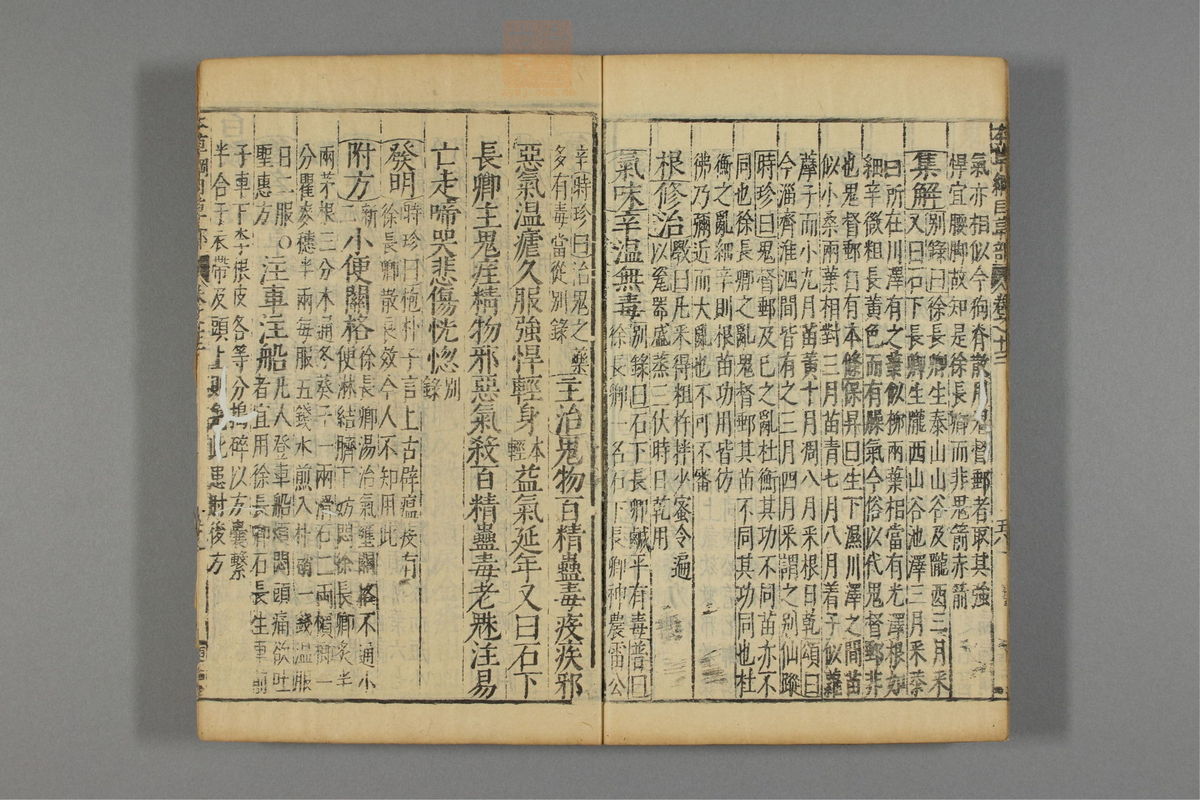 氣亦相似今狗脊散用鬼督郵者取其強
悍宜腰脚故知是徐長卿而非鬼箭赤箭
集解別錄曰徐長卿生泰山山谷及隴西三月采
又曰石下長卿生隴西山谷池澤三月采恭
曰所在川澤有之葉似柳兩葉相當有光澤根如
細辛微粗長黃色而有臊氣今俗以代鬼督郵非
也鬼督郵自有本條保昇曰生下濕川澤之間苗
似小桑兩葉相對三月苗青七月八月着子似蘿
藦子而小九月苗黃十月凋八月采根日乾頌曰
今淄齊淮泗間皆有之三月四月采謂之別仙蹤
時珍曰鬼督郵及巳之亂杜衡其功不同苗亦不
同也徐長卿之亂鬼督郵其苗不同其功同也杜
衡之亂細辛則根苗功用皆彷
彿乃彌近而大亂也不可不審
根修治斆曰凡采得粗杵拌少蜜令遍
以瓷器盛蒸三伏時日乾用
氣味辛温無毒別錄曰石下長卿鹹平有毒普曰
徐長卿一名石下長卿神農雷公
辛時珍曰治鬼之藥
多有毒當從別錄
主治鬼物百精蠱毒疫疾邪
惡氣温瘧久服強悍輕身本輕益氣延年又曰石下
長卿主鬼疰精物邪惡氣殺百精蠱毒老魅注易
亡走啼哭悲傷恍惚別錄
發明時珍曰抱朴子言上古辟瘟疫有
徐長卿散良效今人不知用此
附方新二小便關格徐長卿湯治氣壅關格不通小
便淋結臍下妨悶徐長卿炙半
兩茅根三分木通冬葵子一兩滑石二兩檳榔一
分瞿麥穗半兩每服五錢水煎入朴硝一錢温服
日二服○注車注船凡人登車船煩悶頭痛欲吐
聖惠方者宜用徐長卿石長生車前
子車下李根皮各等分搗碎以方囊繫
半合于衣帶及頭上則免此患肘後方